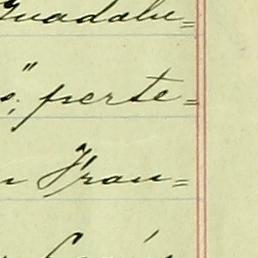 Guadalu=
s", perte=
n Fran=